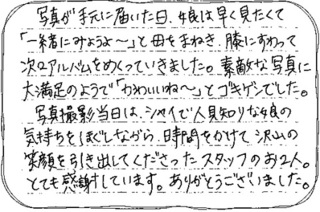 写真が手元に届いた日、娘は早く見たくて
「一緒にみようよ〜」と母をまねき、膝にすわって
次々アルバムをめくっていきました。素敵な写真に
大満足のようで「かわいいね〜」とゴキゲンでした。
写真撮影当日は、シャイで人見知りな娘の
気持ちをほぐしながら、時間をかけて沢山の
笑顔を引き出してくださったスタッフのお2人。
とても感謝しています。ありがとうございました。